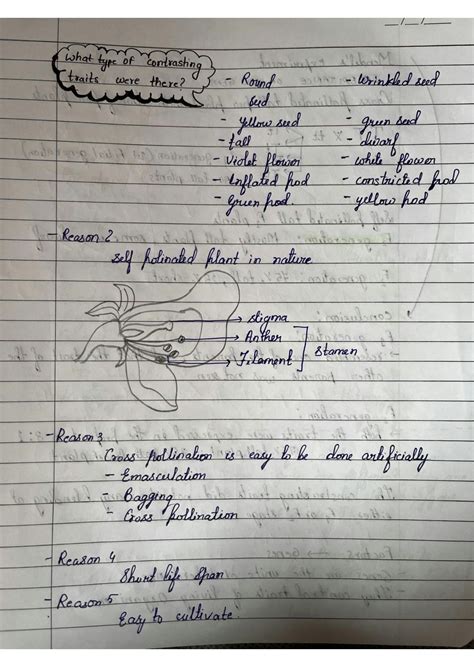 What type of contrasting
traits were there?
- Round seed
- Wrinkled seed
- yellow seed
- green seed
- tall
- dwarf
- violet flower
- white flower
- Inflated pod
- constricted pod
- Green pod.
- yellow pod
- Reason 2
Self polinated plant in nature
→ Stigma
→ Anther
→ Filament
Stamen
- Reason 3
Cross pollination is easy to be done artificially
- Emasculation
- Bagging
- Cross pollination
- Reason 4
Short life span
- Reason 5
Easy to cultivate.